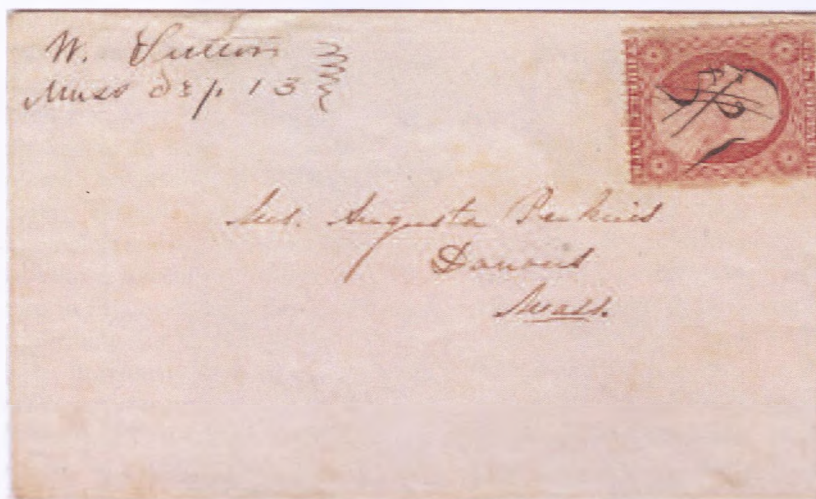 W. Sutton
Mass Sep. 13
Mrs. Augusta Perkins
Danvers
Mass.